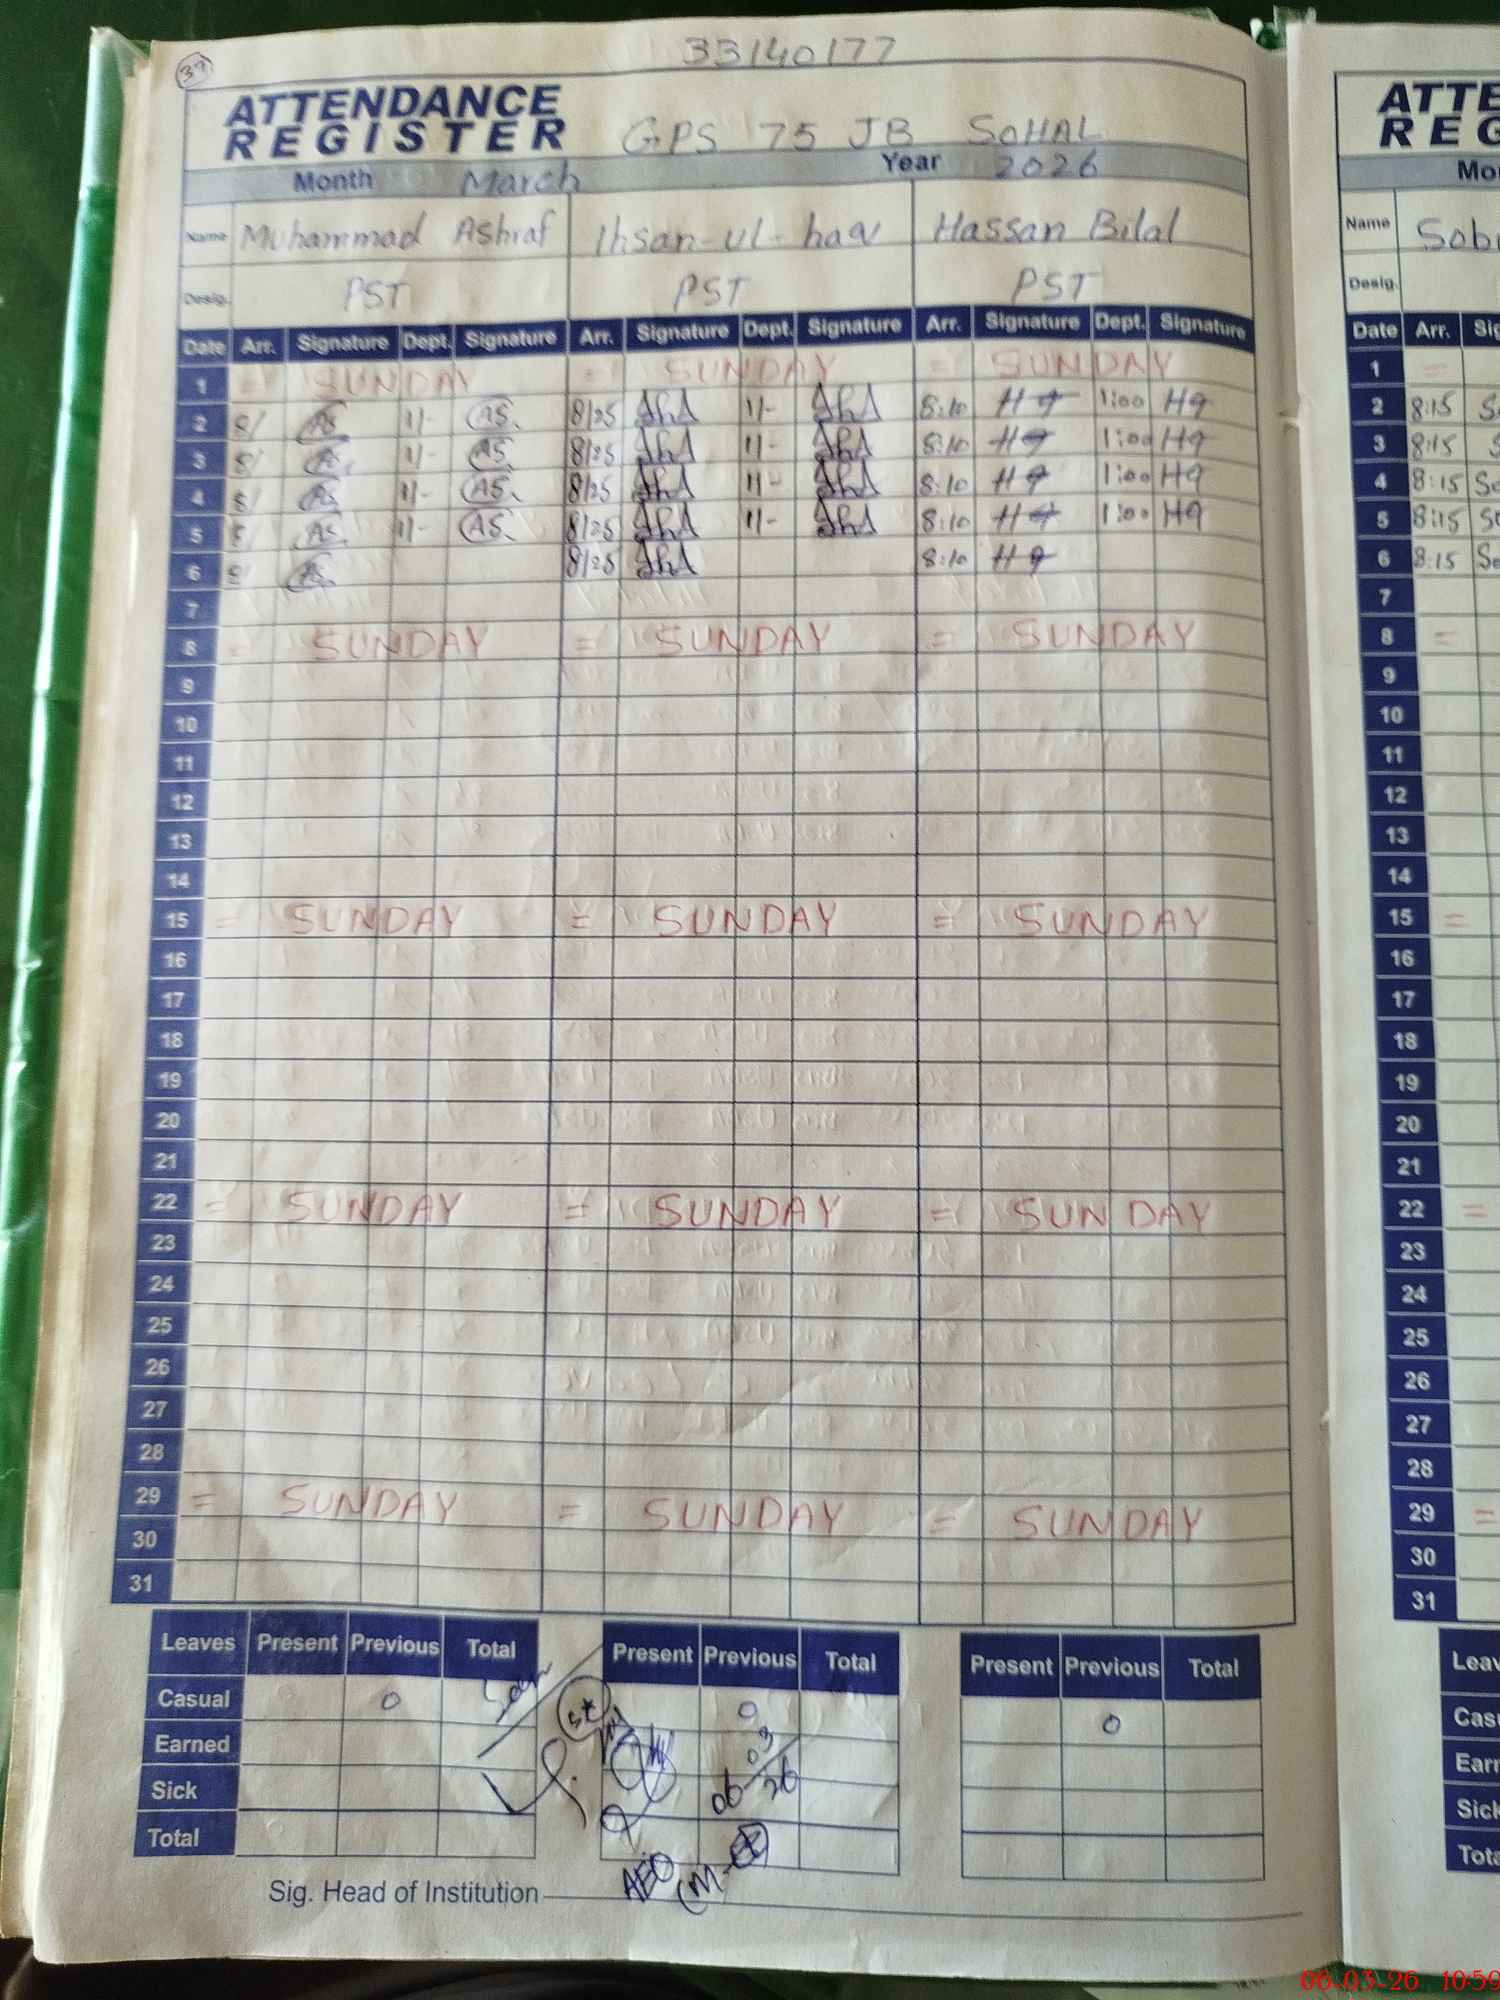 39
33140177
ATTENDANCE
REGISTER GPS 75 JB SOHAL
Month March Year 2026
Name Muhammad Ashraf Ihsan-ul-haq Hassan Bilal
Desig. PST PST PST
Date Arr. Signature Dept. Signature Arr. Signature Dept. Signature Arr. Signature Dept. Signature
1 = SUNDAY = SUNDAY = SUNDAY
2 8/ AS 1/- AS 8/25 1/- 8:10 H9 1:00 H9
3 8/ AS 1/- AS 8/25 1/- 8:10 H9 1:00 H9
4 8/ AS 1/- AS 8/25 1/- 8:10 H9 1:00 H9
5 8/ AS 1/- AS 8/25 1/- 8:10 H9 1:00 H9
6 8/ AS 8/25 8:10 H9
7
8 = SUNDAY = SUNDAY = SUNDAY
9
10
11
12
13
14
15 = SUNDAY = SUNDAY = SUNDAY
16
17
18
19
20
21
22 = SUNDAY = SUNDAY = SUNDAY
23
24
25
26
27
28
29 = SUNDAY = SUNDAY = SUNDAY
30
31
Leaves Present Previous Total Present Previous Total Present Previous Total
Casual 0 0 0
Earned
Sick
Total
06/03/26
AEO
Sig. Head of Institution
ATTE
REG
Mo
Name Sob
Desig.
Date Arr. Sig
1 =
2 8:15 S
3 8:15 S
4 8:15 So
5 8:15 S
6 8:15 So
7
8 =
9
10
11
12
13
14
15 =
16
17
18
19
20
21
22 =
23
24
25
26
27
28
29 =
30
31
Leav
Casu
Earn
Sick
Tota
06-03-26 10:59